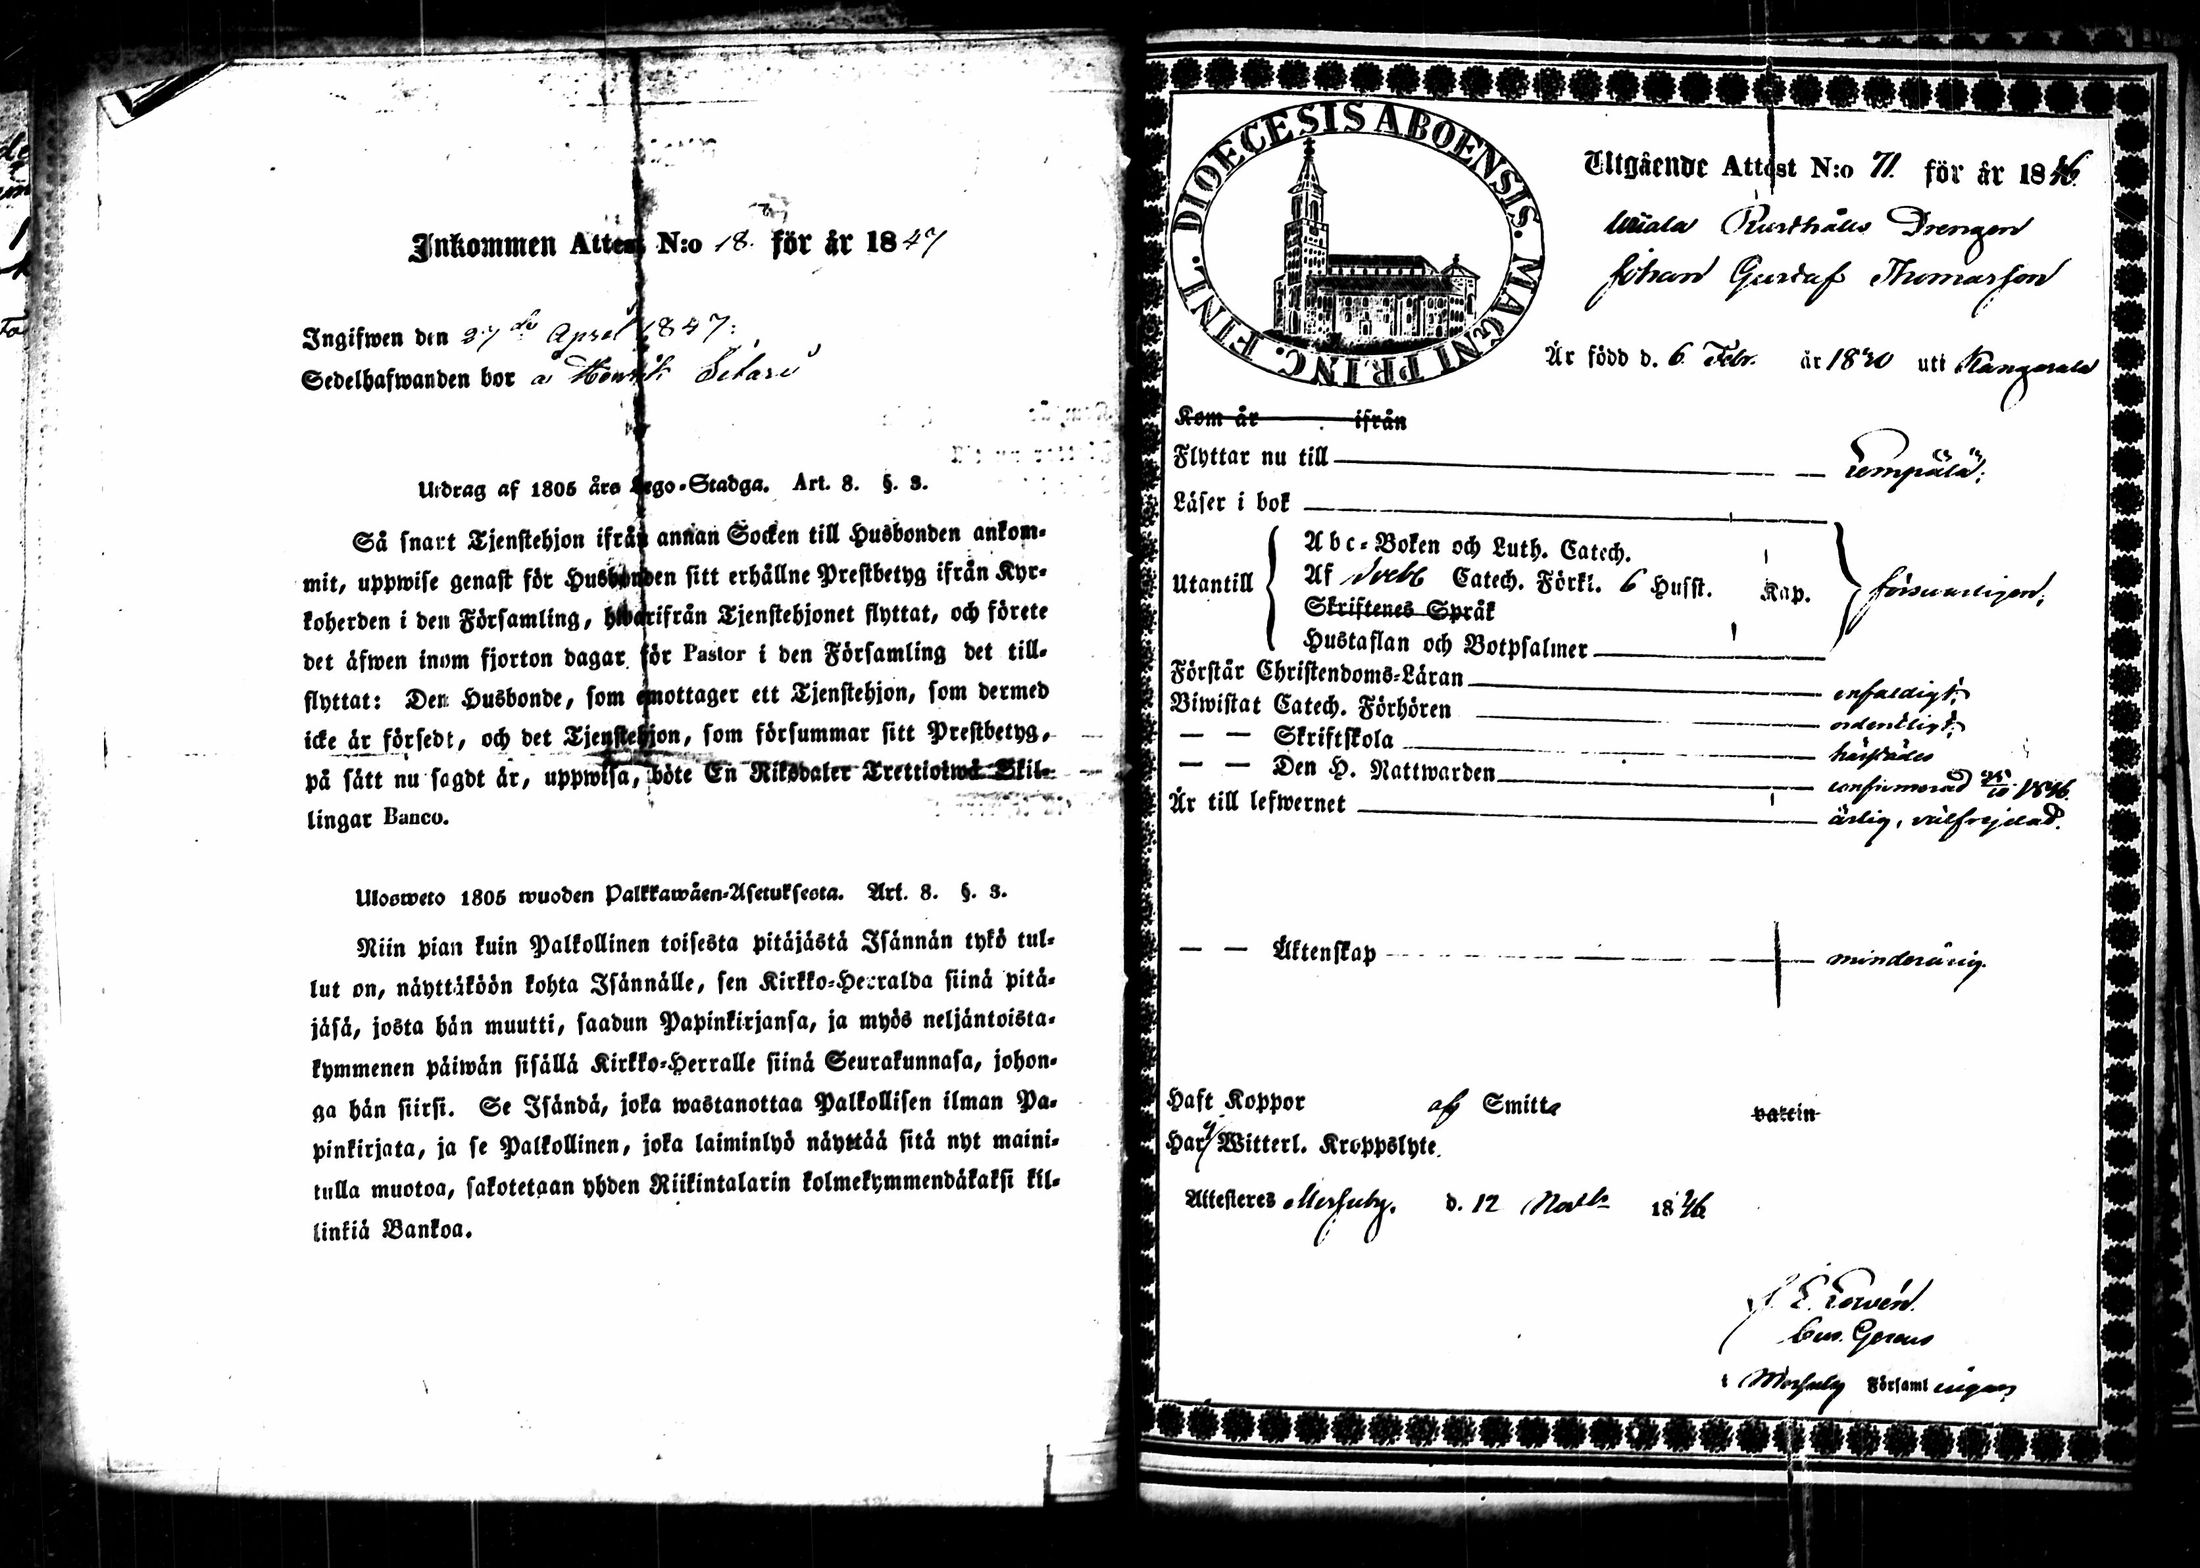 Inkommen Attest N:o 18. för år 1847
Ingifwen den 27de April 1847.
Sedelhafwanden bor å
Utdrag af 1805 års Lego-Stadga. Art. 8. §. 3.
Så snart Tjenstehjon ifrån annan Socken till Husbonden ankom-
mit, uppwise genast för Husbonden sitt erhållne Prestbetyg ifrån Kyr-
koherden i den Församling, hwarifrån Tjenstehjonet flyttat, och förete
det äfwen inom fjorton dagar för Pastor i den Församling det till-
flyttat: Den Husbonde, som emottager ett Tjenstehjon, som dermed
icke är försedt, och det Tjenstehjon, som försummar sitt Prestbetyg,
på sätt nu sagdt är, uppwisa, böte En Riksdaler Trettiotwå Skil-
lingar Banco.
Ulosweto 1805 wuoden Palkkawäen-Asetuksesta. Art. 8. §. 3.
Niin pian kuin Palkollinen toisesta pitäjästä Isännän tykö tul-
lut on, näyttäköön kohta Isännälle, sen Kirkko-Herralda siinä pitä-
jäsä, josta hän muutti, saadun Papinkirjansa, ja myös neljäntoista-
kymmenen päiwän sisällä Kirkko-Herralle siinä Seurakunnasa, johon-
ga hän siirsi. Se Isändä, joka wastanottaa Palkollisen ilman Pa-
pinkirjata, ja se Palkollinen, joka laiminlyö näyttää sitä nyt maini-
tulla muotoa, sakotetaan yhden Riikintalarin kolmekymmendäkaksi kil-
linkiä Bankoa.
DIOECESIS ABOENSIS. MAGNI PRINC. FINL.
Utgående Attest N:o 71. för år 1846.
Rusthålls Drengen
Johan Gustaf Thomasson
Är född d. 6 Febr. år 1830 uti Kangasala
Kom år ifrån
Flyttar nu till Lempälä;
Läser i bok
Utantill
Abc-Boken och Luth. Catech.
Af Sveb. Catech. Förkl. 6 Hufst. Kap.
Skriftenes Språk
Hustaflan och Botpsalmer
försvarligen;
Förstår Christendoms-Läran enfaldigt;
Biwistat Catech. Förhören ordentligt;
— — Skriftskola härstädes
— — Den H. Nattwarden confirmerad 25/10 1846.
Är till lefwernet ärlig, välfrejdad.
— — Äktenskap minderårig.
Haft Koppor af Smitta vaccin
Har ej Witterl. Kroppslyte.
Attesteres Messuby. d. 12 Novb 1846
i Messuby Församlingar